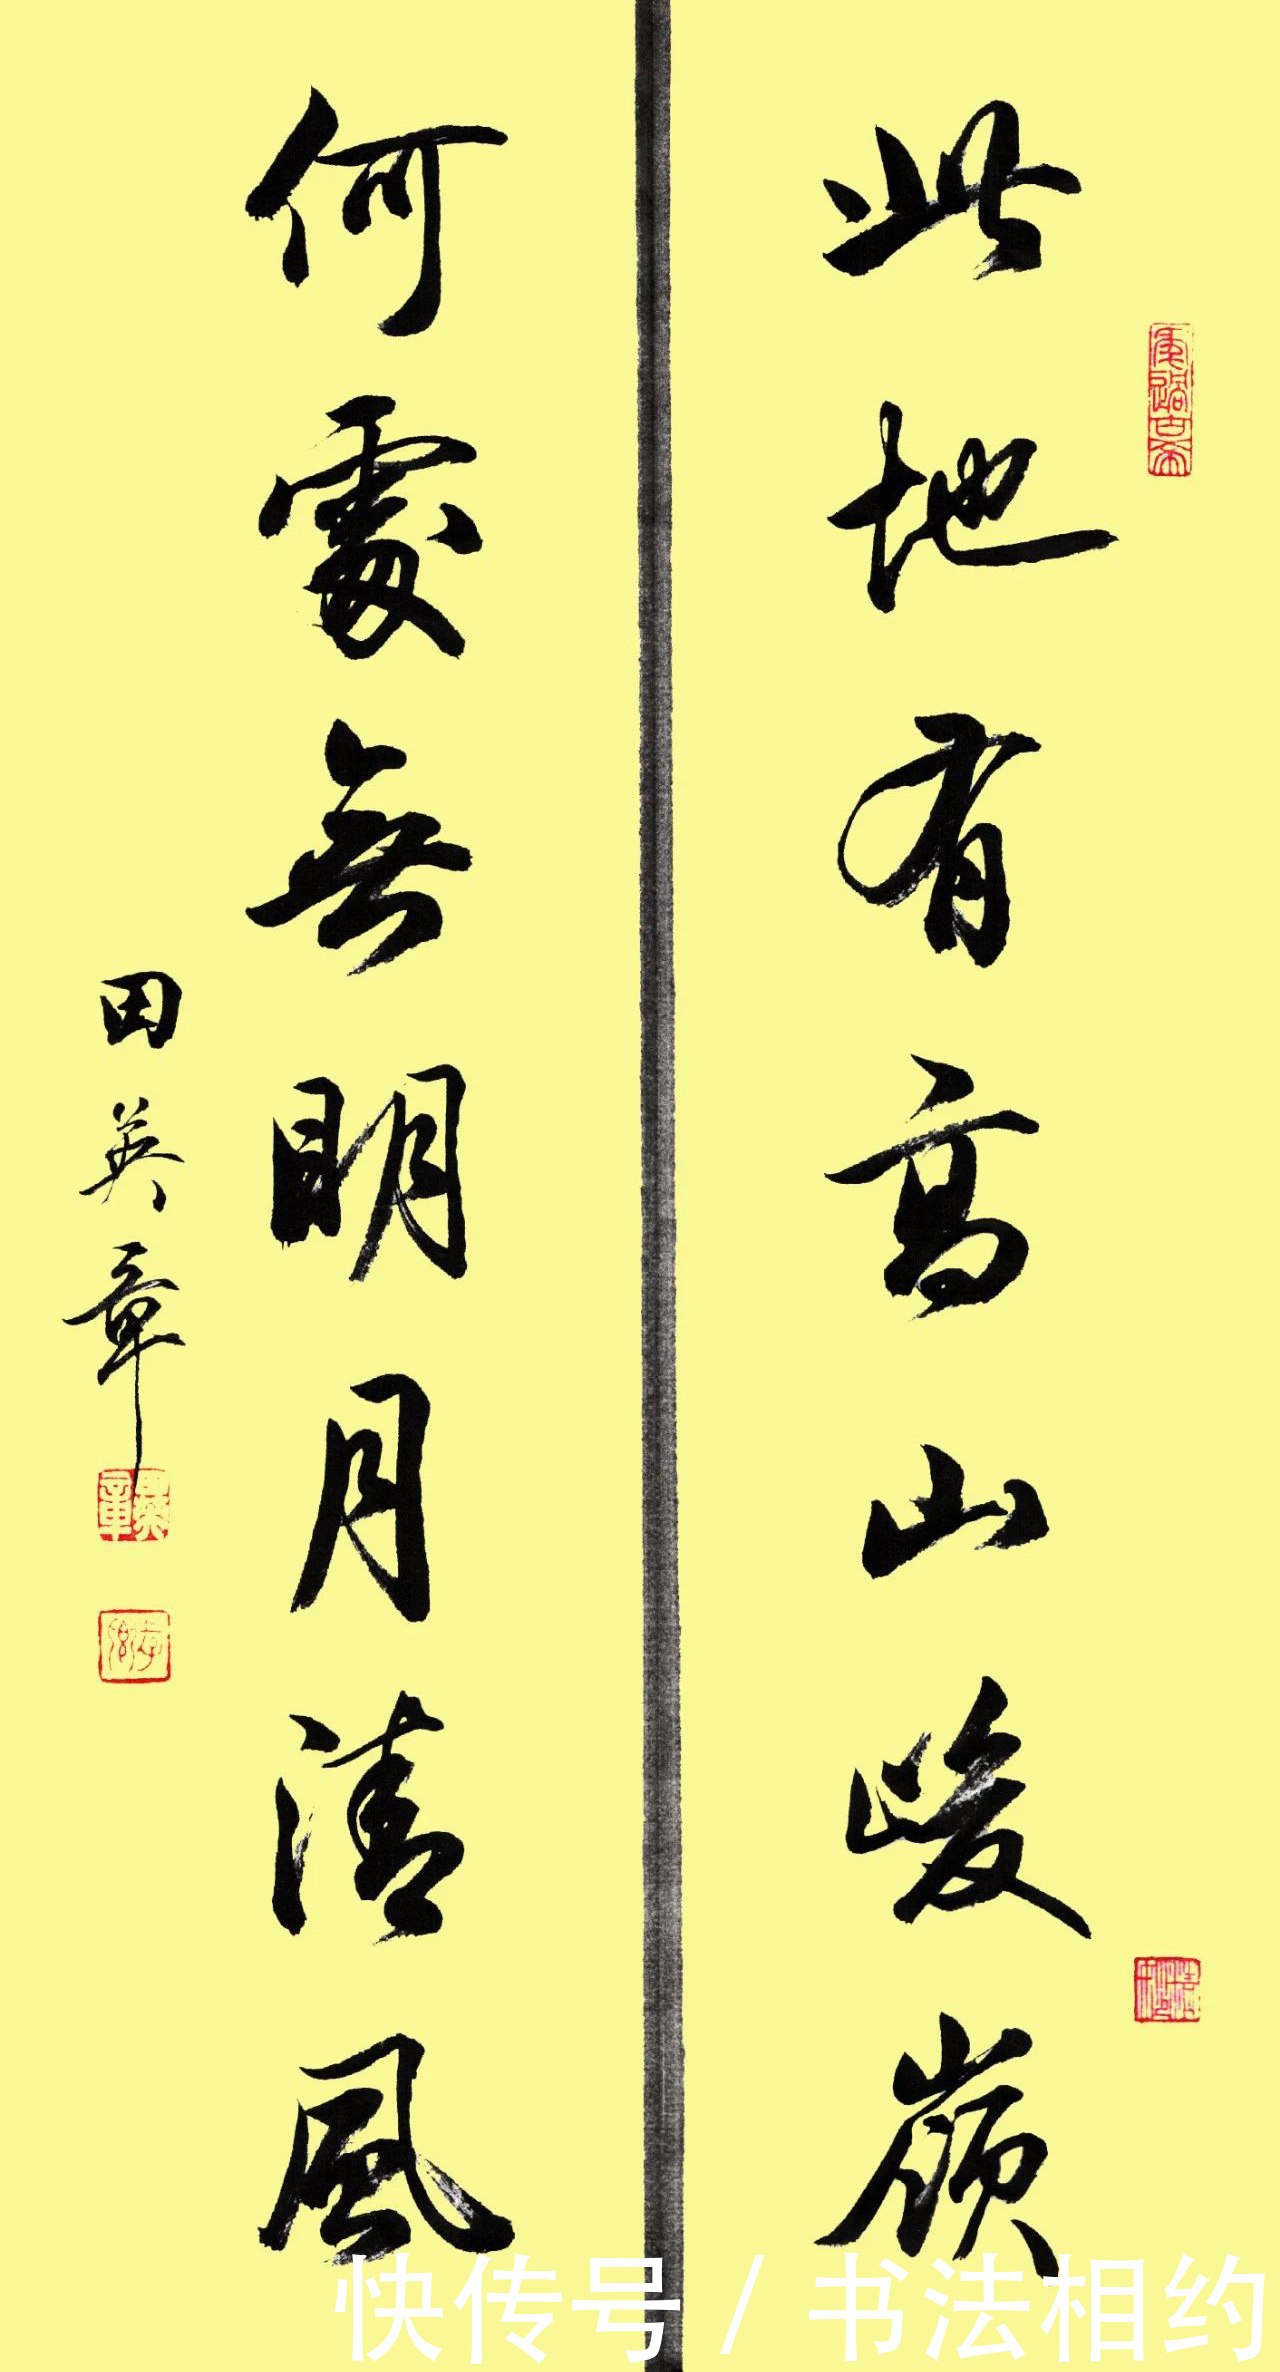 此地有高山峻嶺
何處無明月清風
田英章
英章
快传号 / 书法相约